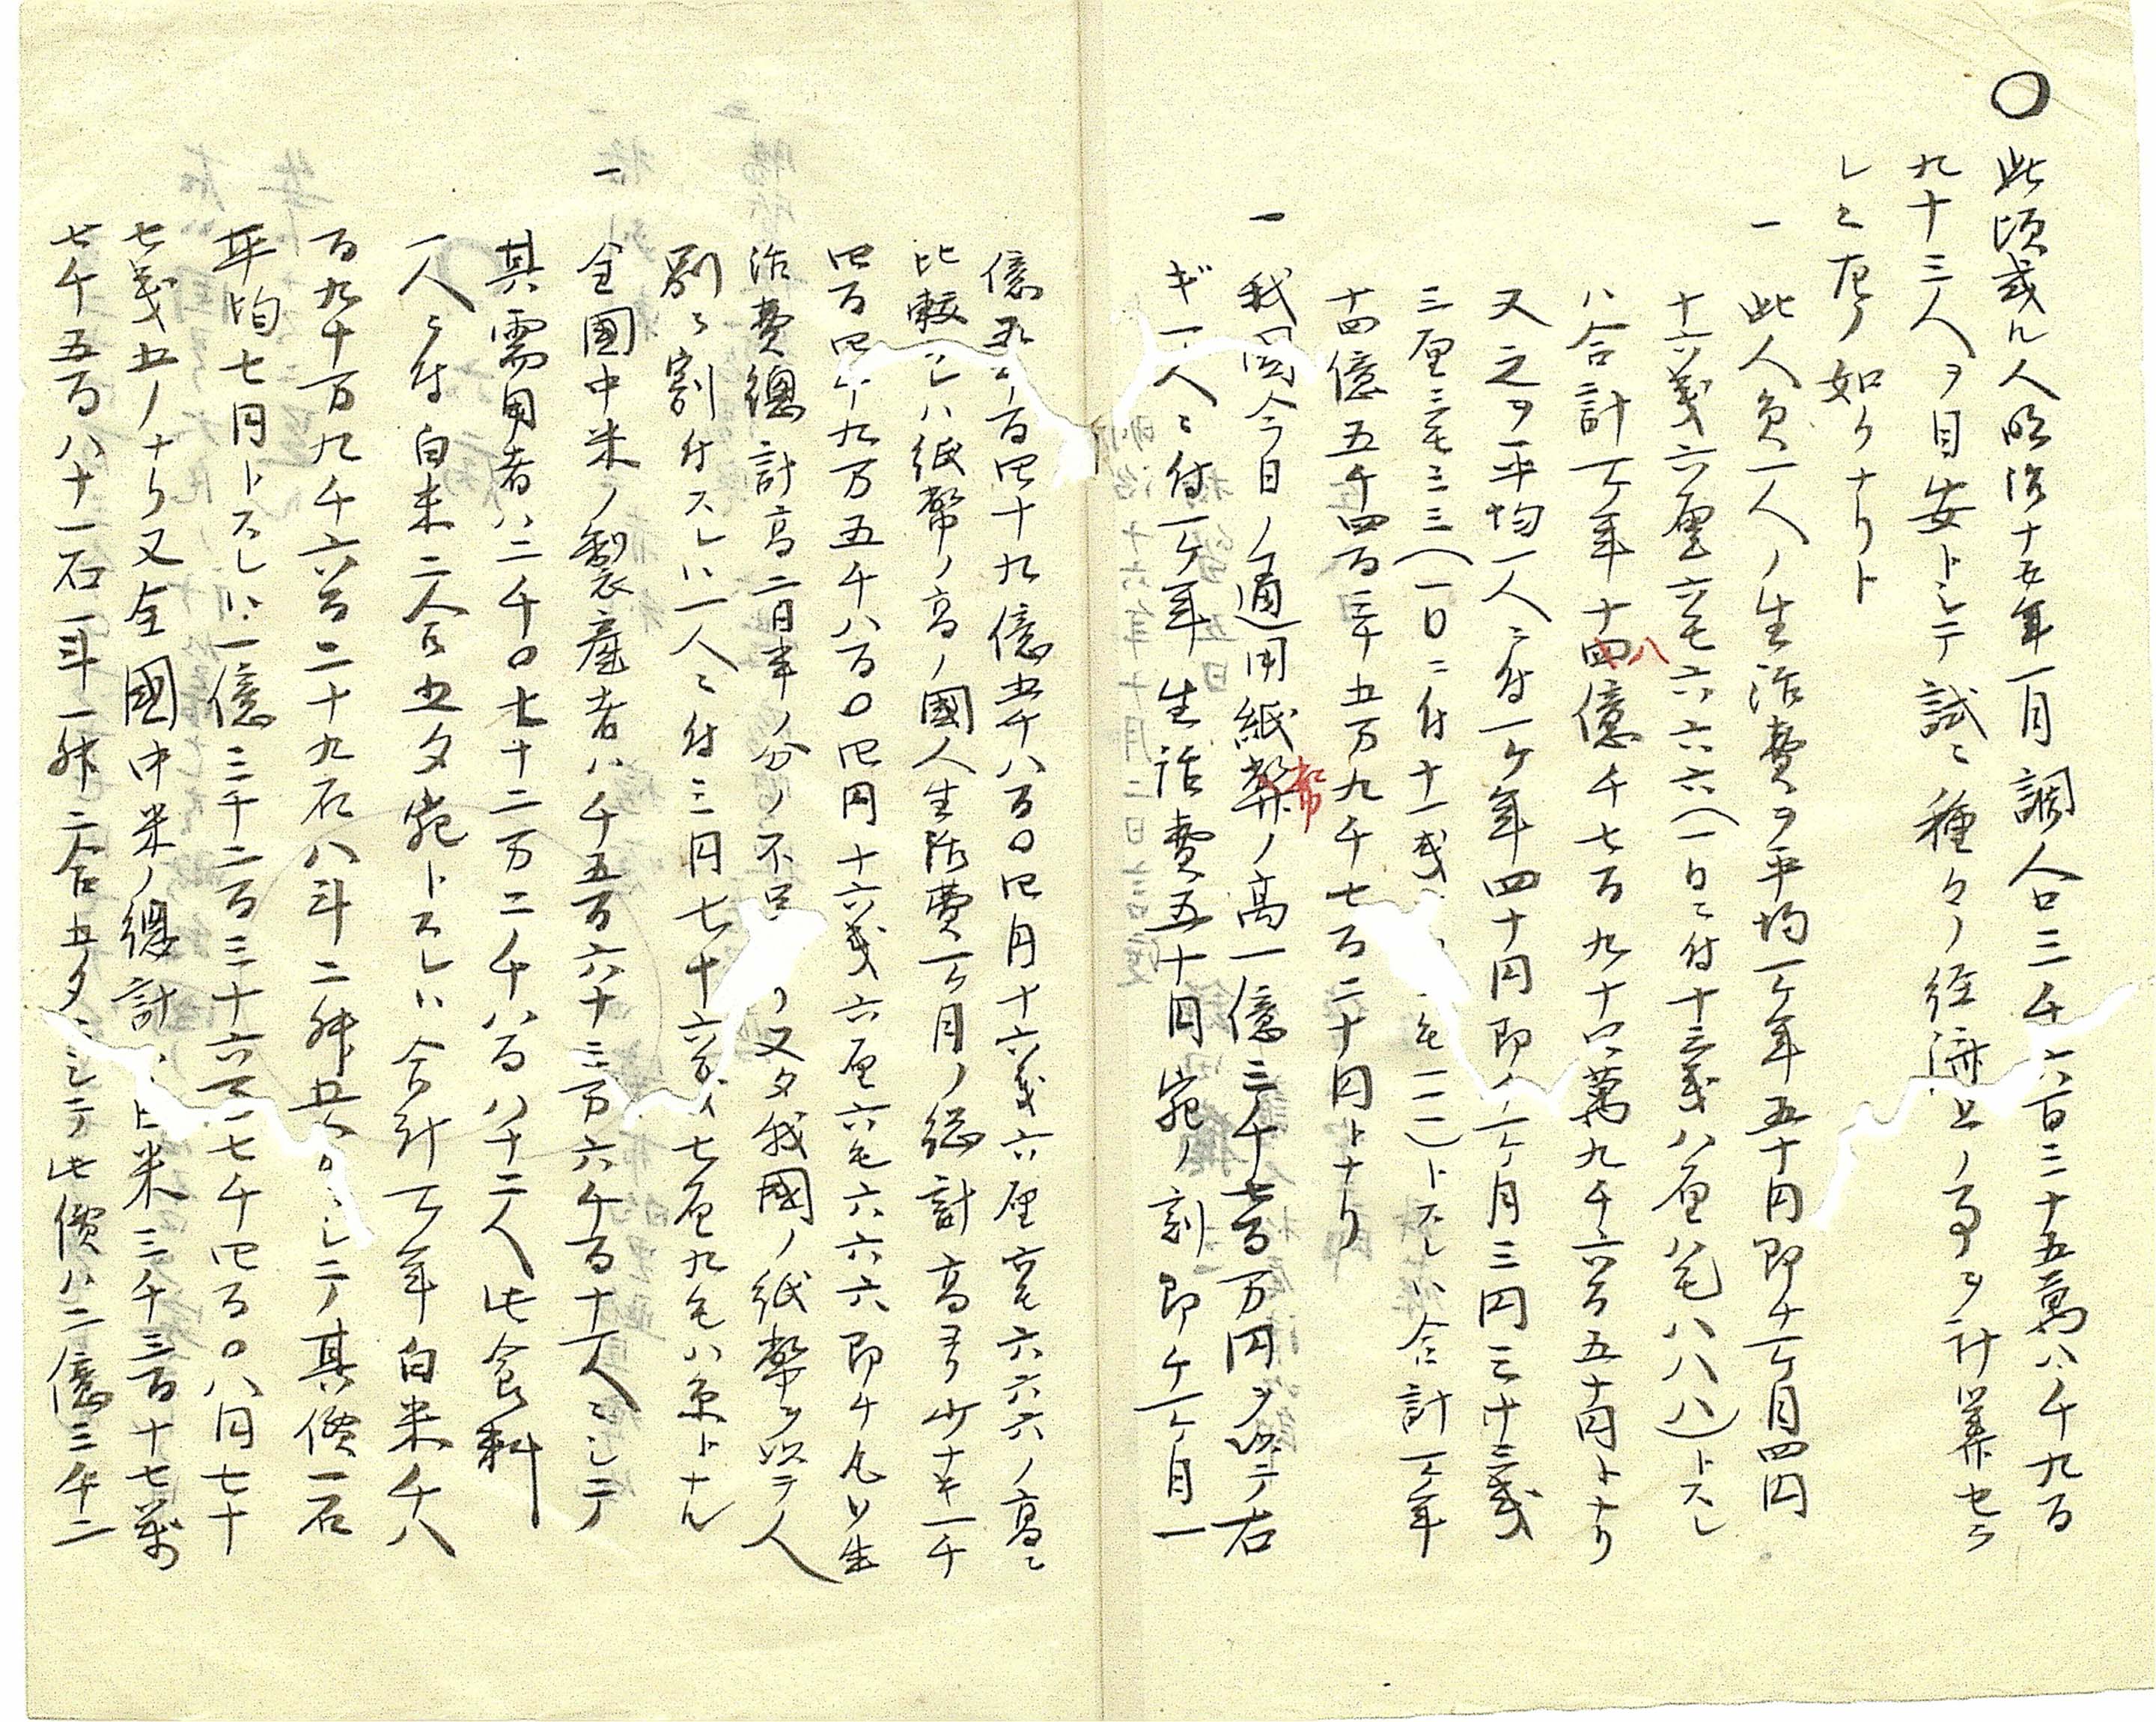 〇此頃或ル人明治十五年一月調人口三千六百三十五萬八千九百
九十三人ヲ目安トシテ試ニ種々ノ経済上ノ事ヲ計算セラ
レシニ左ノ如クナリト
一此人員一人ノ生活費ヲ平均一ケ年五十円即チ一ケ月四円
十六戔六厘六毛六六六(一日ニ付十三戔八厘八毛八八八)トスレ
ハ合計一ケ年十四八億千七百九十四萬九千六百五十円トナリ
又之ヲ平均一人ニ付一ケ年四十円即ノ一ケ月三円三十三戔
三厘三毛三三(一日ニ付十一戔 毛一一一)トスレハ合計一ケ年
十四億五千四百三十五万九千七百二十円トナリ
一我国今日ノ通用紙弊幣ノ高一億三千七百万円ヲ以テ右
一人ニ付一ケ年生活費五十円宛ノ割即チ一ケ月一
億五千百四十九億五千八百〇四円十六戔六厘六毛六六六ノ高ニ
比較スレハ紙幣ノ高ノ國人生活費一ケ月ノ総計高ヨリ少キ一千
四百四十九万五千八百〇四円十六戔六厘六毛六六六即チ凡ソ生
活費總計高二日半ノ分ノ不足 又タ我國ノ紙幣ヲ以テ人
別ニ割付スレハ一人ニ付三円七十六戔七厘九毛八糸トナル
一全國中米ノ製産者ハ千五百六十三万六千百十一人ニシテ
其需用者ハ二千〇七十二万二千八百八十二人此食料
一人ニ付白米二合五夕宛トスレハ合計一ケ年白米千八
百九十万九千六百二十九石八斗二升五合ニシテ其價一石
平均七円トスレハ一億三千二百三十六万七千四百〇八円七十
七戔五ノナリ又全國中米ノ總計 白米三千三百十七萬
七千五百八十一石一斗一升二合五夕ニシテ此價ハ二億三千二